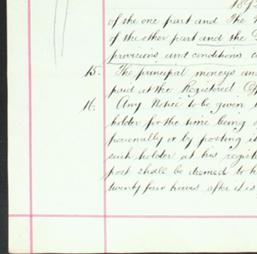 189
of the one part and the
of the other part and the
provisions and conditions
15. The principal moneys and
paid at the Registered Of
16. Any Notice to be given
holder for the time being
personally or by posting it
such holder at his regist
post shall be deemed to h
twenty four hours after it is